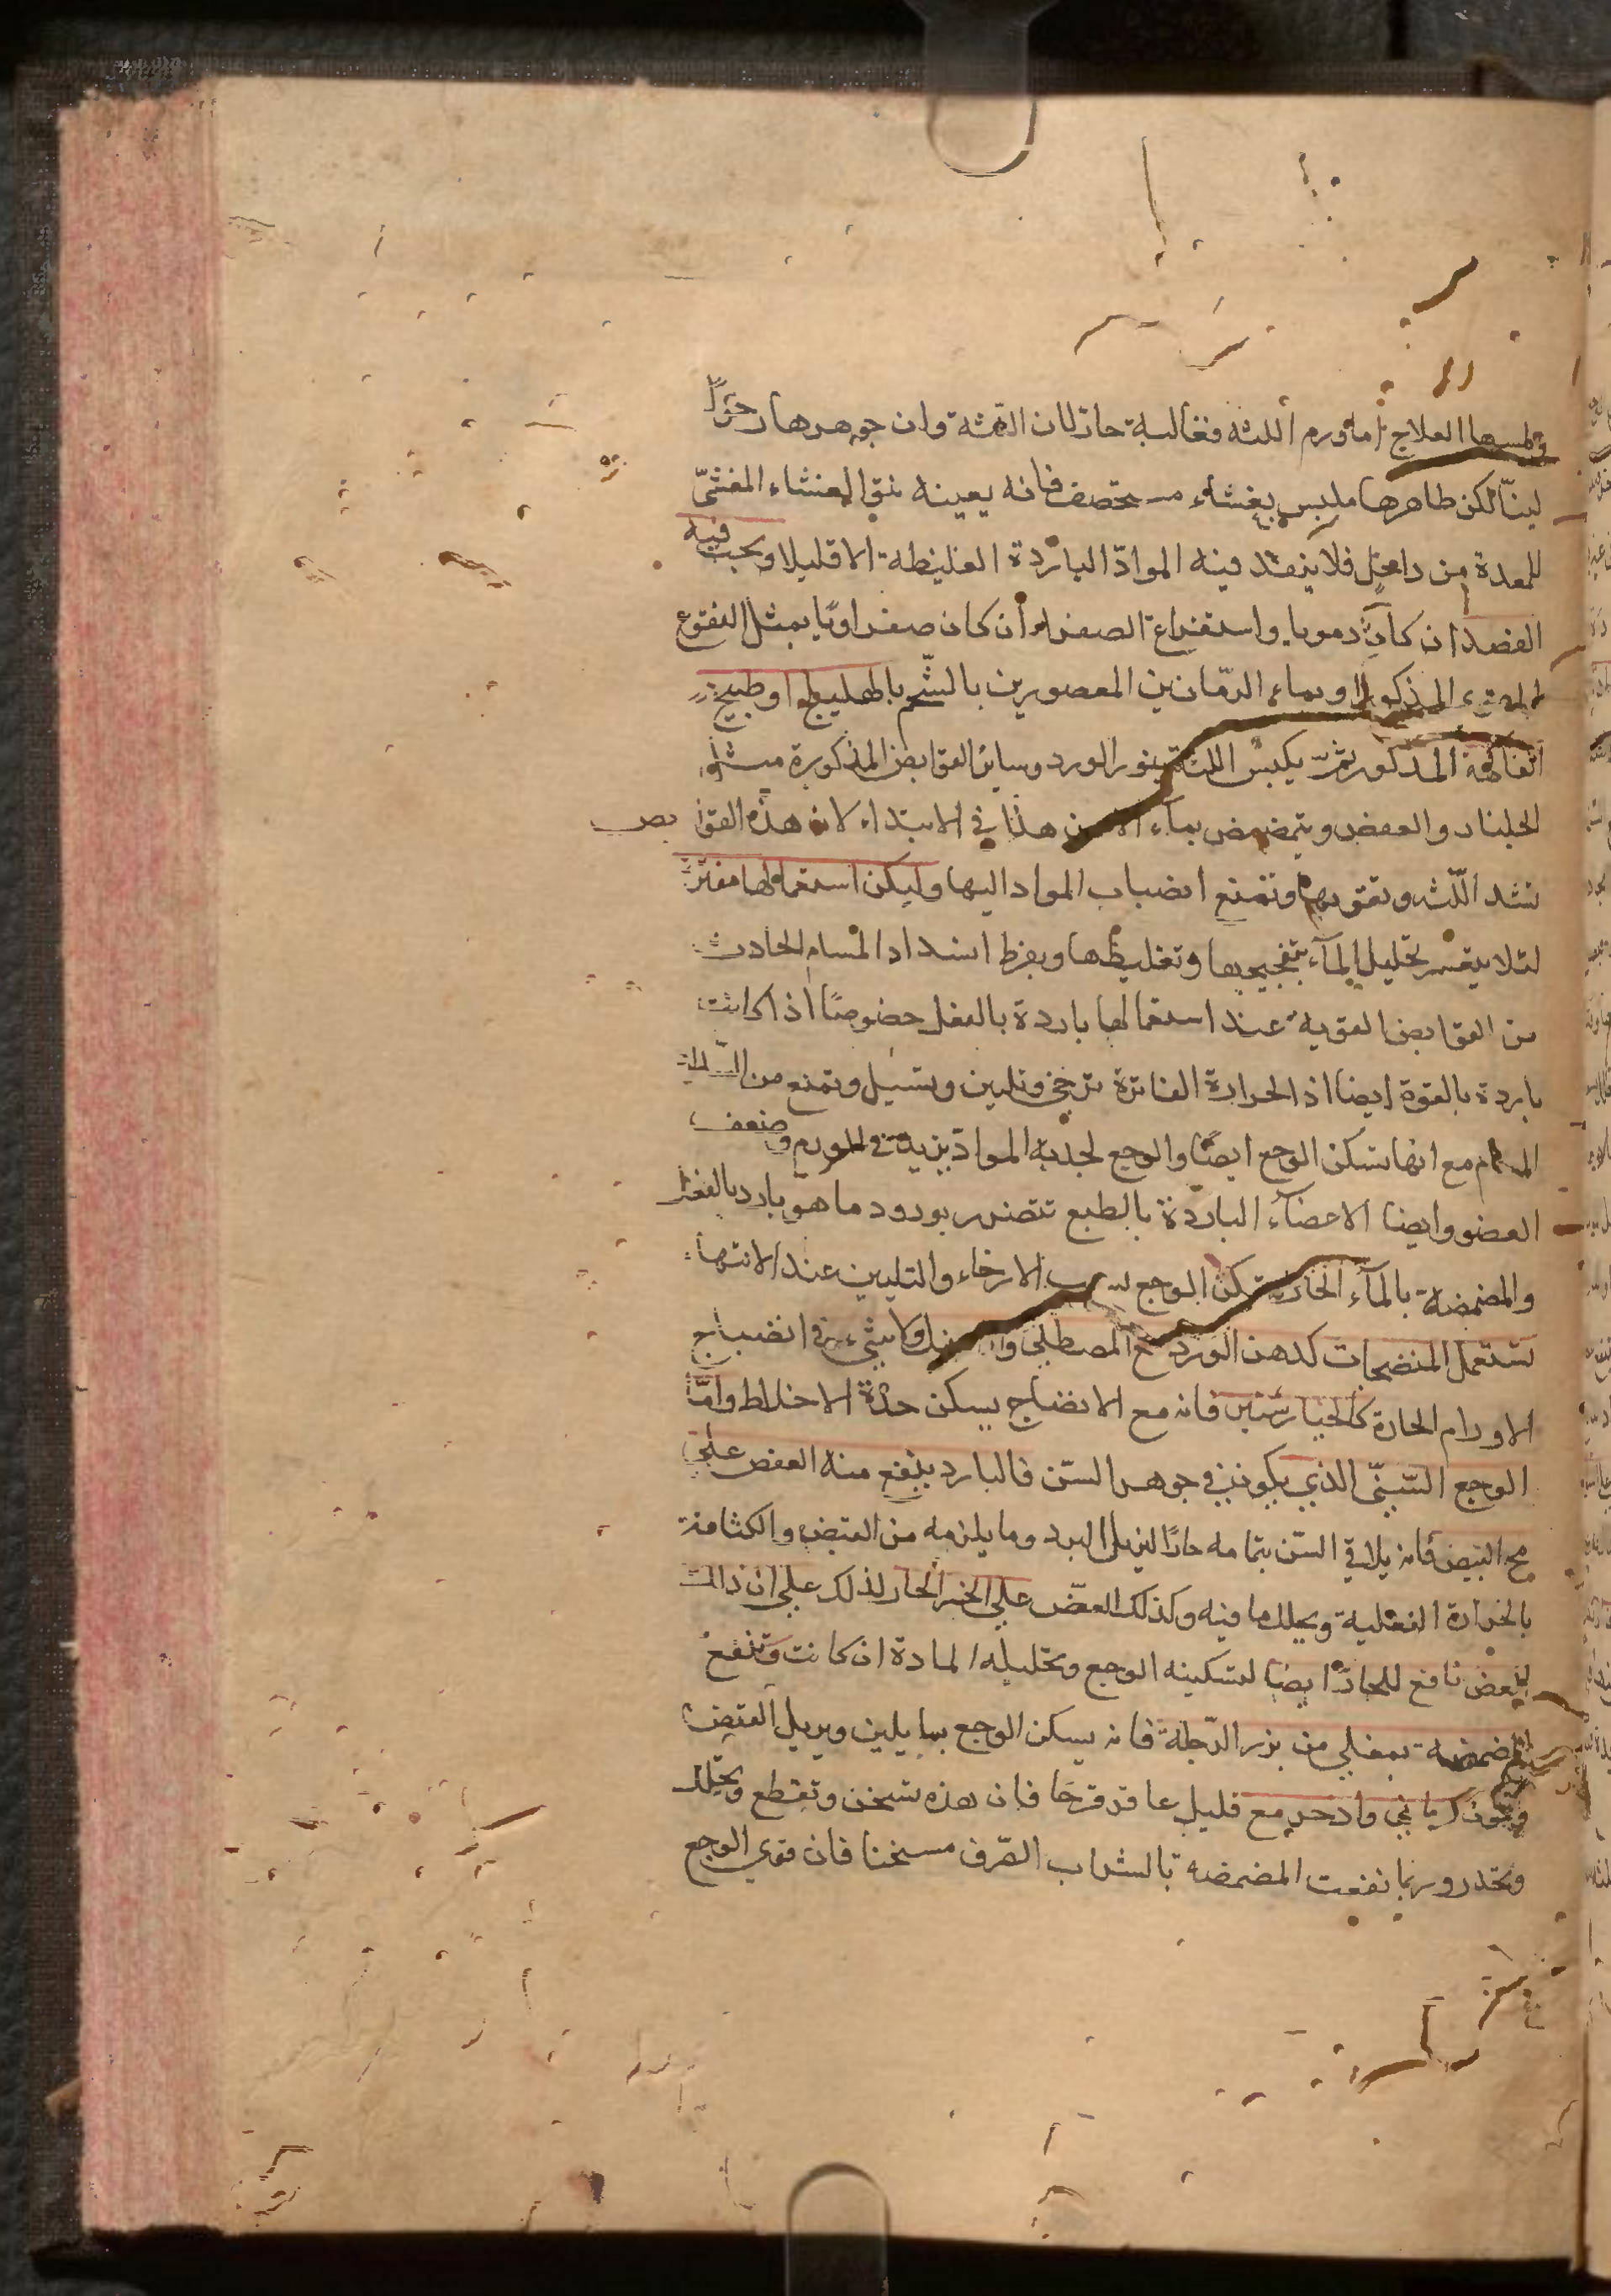 ولمسها العلاج اما ورم اللثه فغالبه حار لان اللثة وان جوهرها رخوا
لينا لكن ظاهرها ملبس بغشاء مستحصف فانه بعينه الغشاء المغشّي
للمعدة من داخل فلا ينفذ فيه الموادّ الباردة الغليظة الا قليلا ويجب فيه
الفصد ان كان دمويا واستفراغ الصفراء ان كان صفراويّا بمثل النقوع
المذكور او بماء الرمّانين المعصورين بالشحم بالهليلج او طبيخ
الفاكهة المذكور ثمّ يكبس اللثة ببزر الورد وسائر القوابض المذكورة مثل
الجلنار والعفص ويتمضمض بماء الآس هذا في الابتداء لان هذه القوابض
تشد اللّثة وتقويها وتمنع انصباب المواد اليها وليكن استعمالها مفترة
لئلا يعسر تحليل المآء بتفجيجها وتغليظها وبفرط انسداد المسام الحادث
من القوابض القوية عند استعمالها باردة بالفعل خصوصا اذا كانت
باردة بالقوة ايضا اذ الحرارة الفاترة ترخي وتلين وتسيل وتمنع من انسداد
المسام مع انها تسكن الوجع ايضا والوجع لجذبه الموادّ يزيد في الورم وضعف
العضو وايضا الاعضآء الباردة بالطبع تتضرر بورود ما هو بارد بالفعل
والمضمضة بالمآء الحار تسكن الوجع بسبب الارخاء والتليين عند الانتهاء
تستعمل المنضجات كدهن الورد مع المصطكي والسنبل ولا شيء في انضاج
الاورام الحارة كالخيارشنبر فانه مع الانضاج يسكن حدّة الاخلاط وامّا
الوجع السّنّي الذي يكون في جوهر السنّ فالبارد ينفع منه العض علي
مح البيض فانه يلاقي السنّ بتمامه حارّا ليزيل البرد وما يلزمه من القبض والكثافة
بالحرارة الفعلية ويحلل ما فيه وكذلك العضّ علي الخبز الحار لذلك علي ان ذلك
العض نافع للحارّ ايضا لتسكينه الوجع وتحليله المادة ان كانت وتنفع
المضمضة بمغلي من بزر الرّجلة فانه يسكن الوجع بما يلين ويزيل القبض
وكمون كرماني واذخر مع قليل عاقر قرحا فان هذه تسخن وتقطع وتحلل
وتخدر وربما نفعت المضمضة بالشراب الصّرف مسخنا فان قوي الوجع